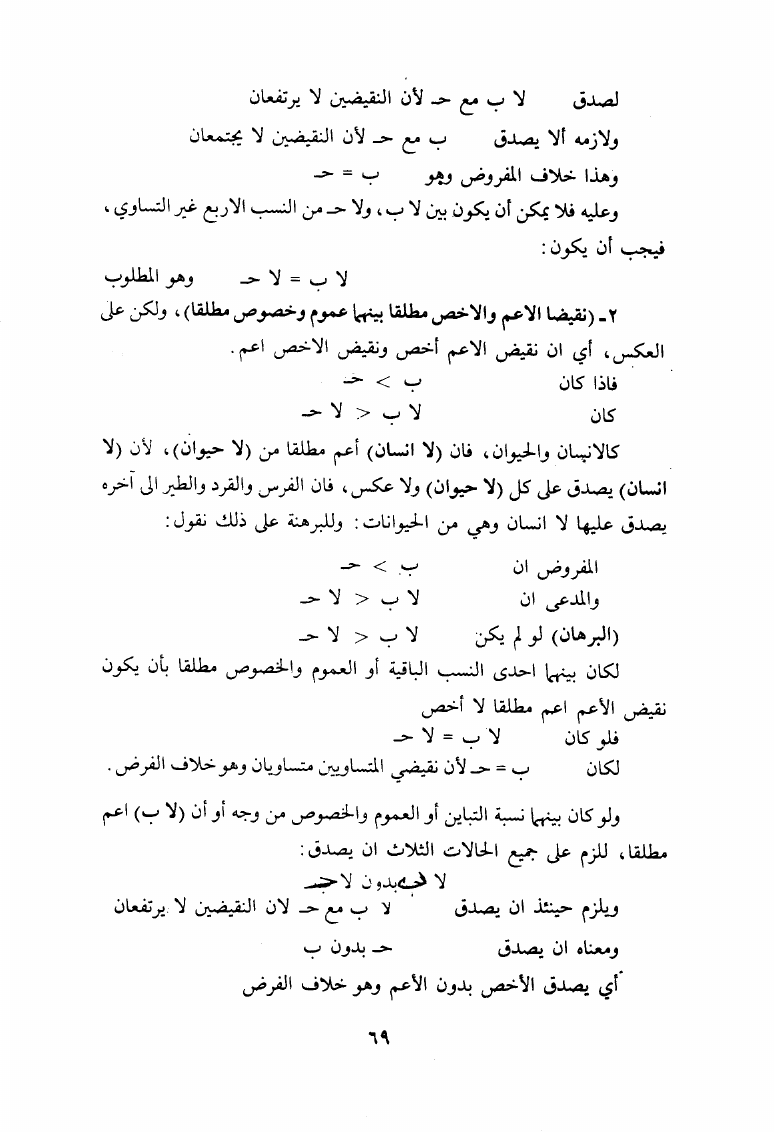 لصدق لا ب مع حـ لأن النقيضين لا يرتفعان
ولازمه ألا يصدق ب مع حـ لأن النقيضين لا يجتمعان
وهذا خلاف المفروض وهو ب = حـ
وعليه فلا يمكن أن يكون بين لا ب ، ولا حـ من النسب الاربع غير التساوي ،
فيجب أن يكون :
لا ب = لا حـ وهو المطلوب
٢ ـ (نقيضا الاعم والاخص مطلقا بينهما عموم وخصوص مطلقا) ، ولكن على
العكس ، أي ان نقيض الاعم أخص ونقيض الاخص اعم .
فاذا كان ب > حـ
كان لا ب < لا حـ
كالانسان والحيوان ، فان (لا انسان) أعم مطلقا من (لا حيوان) ، لأن (لا
انسان) يصدق على كل (لا حيوان) ولا عكس ، فان الفرس والقرد والطير الى آخره
يصدق عليها لا انسان وهي من الحيوانات : وللبرهنة على ذلك نقول :
المفروض ان ب > حـ
والمدعى ان لا ب < لا حـ
(البرهان) لو لم يكن لا ب < لا حـ
لكان بينهما احدى النسب الباقية أو العموم والخصوص مطلقا بأن يكون
نقيض الأعم اعم مطلقا لا أخص
فلو كان لا ب = لا حـ
لكان ب = حـ لأن نقيضي المتساويين متساويان وهو خلاف الفرض .
ولو كان بينهما نسبة التباين أو العموم والخصوص من وجه أو أن (لا ب) اعم
مطلقا ، للزم على جميع الحالات الثلاث ان يصدق :
لا بدون لا حـ
ويلزم حينئذ ان يصدق لا ب مع حـ لان النقيضين لا يرتفعان
ومعناه ان يصدق حـ بدون ب
أي يصدق الأخص بدون الأعم وهو خلاف الفرض
٦٩